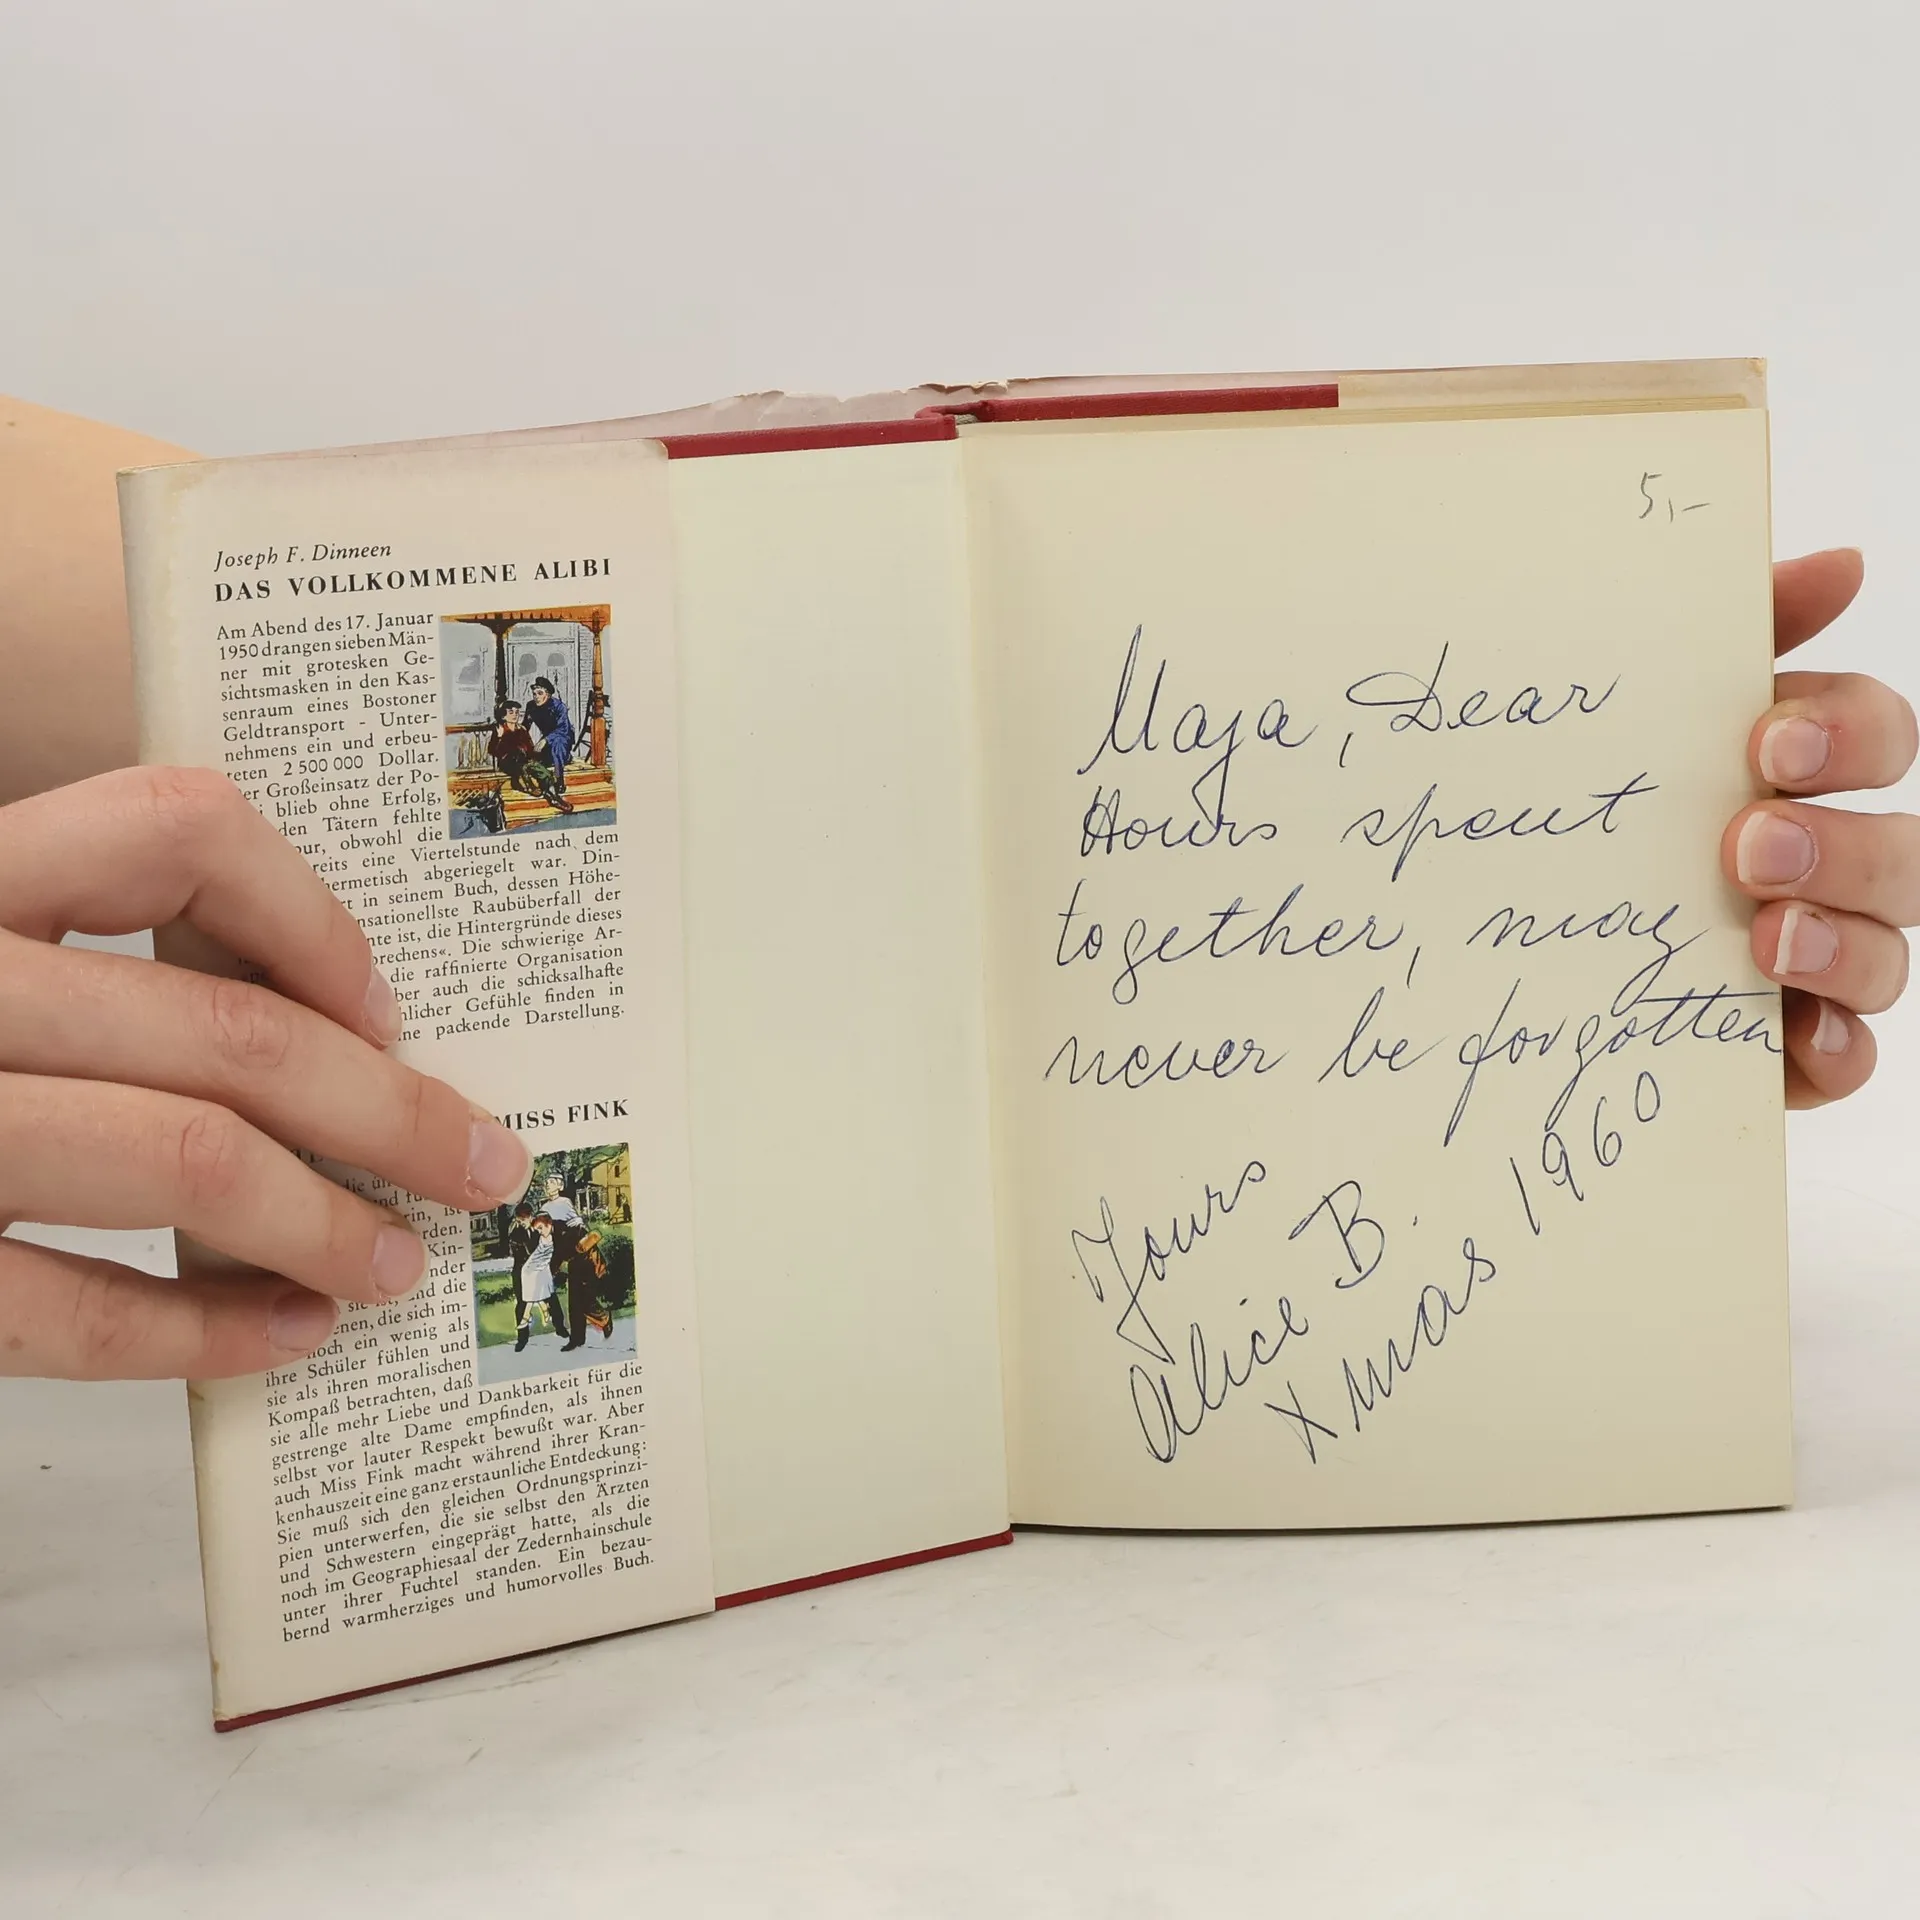 Joseph F. Dinneen
DAS VOLLKOMMENE ALIBI
Am Abend des 17. Januar
1950 drangen sieben Män-
ner mit grotesken Ge-
sichtsmasken in den Kas-
senraum eines Bostoner
Geldtransport - Unter-
nehmens ein und erbeu-
teten 2 500 000 Dollar.
er Großeinsatz der Po-
i blieb ohne Erfolg,
den Tätern fehlte
ur, obwohl die
reits eine Viertelstunde nach dem
hermetisch abgeriegelt war. Din-
rt in seinem Buch, dessen Höhe-
nsationellste Raubüberfall der
nte ist, die Hintergründe dieses
brechens«. Die schwierige Ar-
die raffinierte Organisation
ber auch die schicksalhafte
hlicher Gefühle finden in
ne packende Darstellung.
MISS FINK
die
nd
rin, ist
rden.
Kin-
nder
sie ist, und die
enen, die sich im-
noch ein wenig als
ihre Schüler fühlen und
sie als ihren moralischen
Kompaß betrachten, daß
sie alle mehr Liebe und Dankbarkeit für die
gestrenge alte Dame empfinden, als ihnen
selbst vor lauter Respekt bewußt war. Aber
auch Miss Fink macht während ihrer Kran-
kenhauszeit eine ganz erstaunliche Entdeckung:
Sie muß sich den gleichen Ordnungsprinzi-
pien unterwerfen, die sie selbst den Ärzten
und Schwestern eingeprägt hatte, als die
noch im Geographiesaal der Zedernhainschule
unter ihrer Fuchtel standen. Ein bezau-
bernd warmherziges und humorvolles Buch.
5,-
Maja, Dear
Hours spent
together, may
never be forgotten
Yours
Alice B.
Xmas 1960